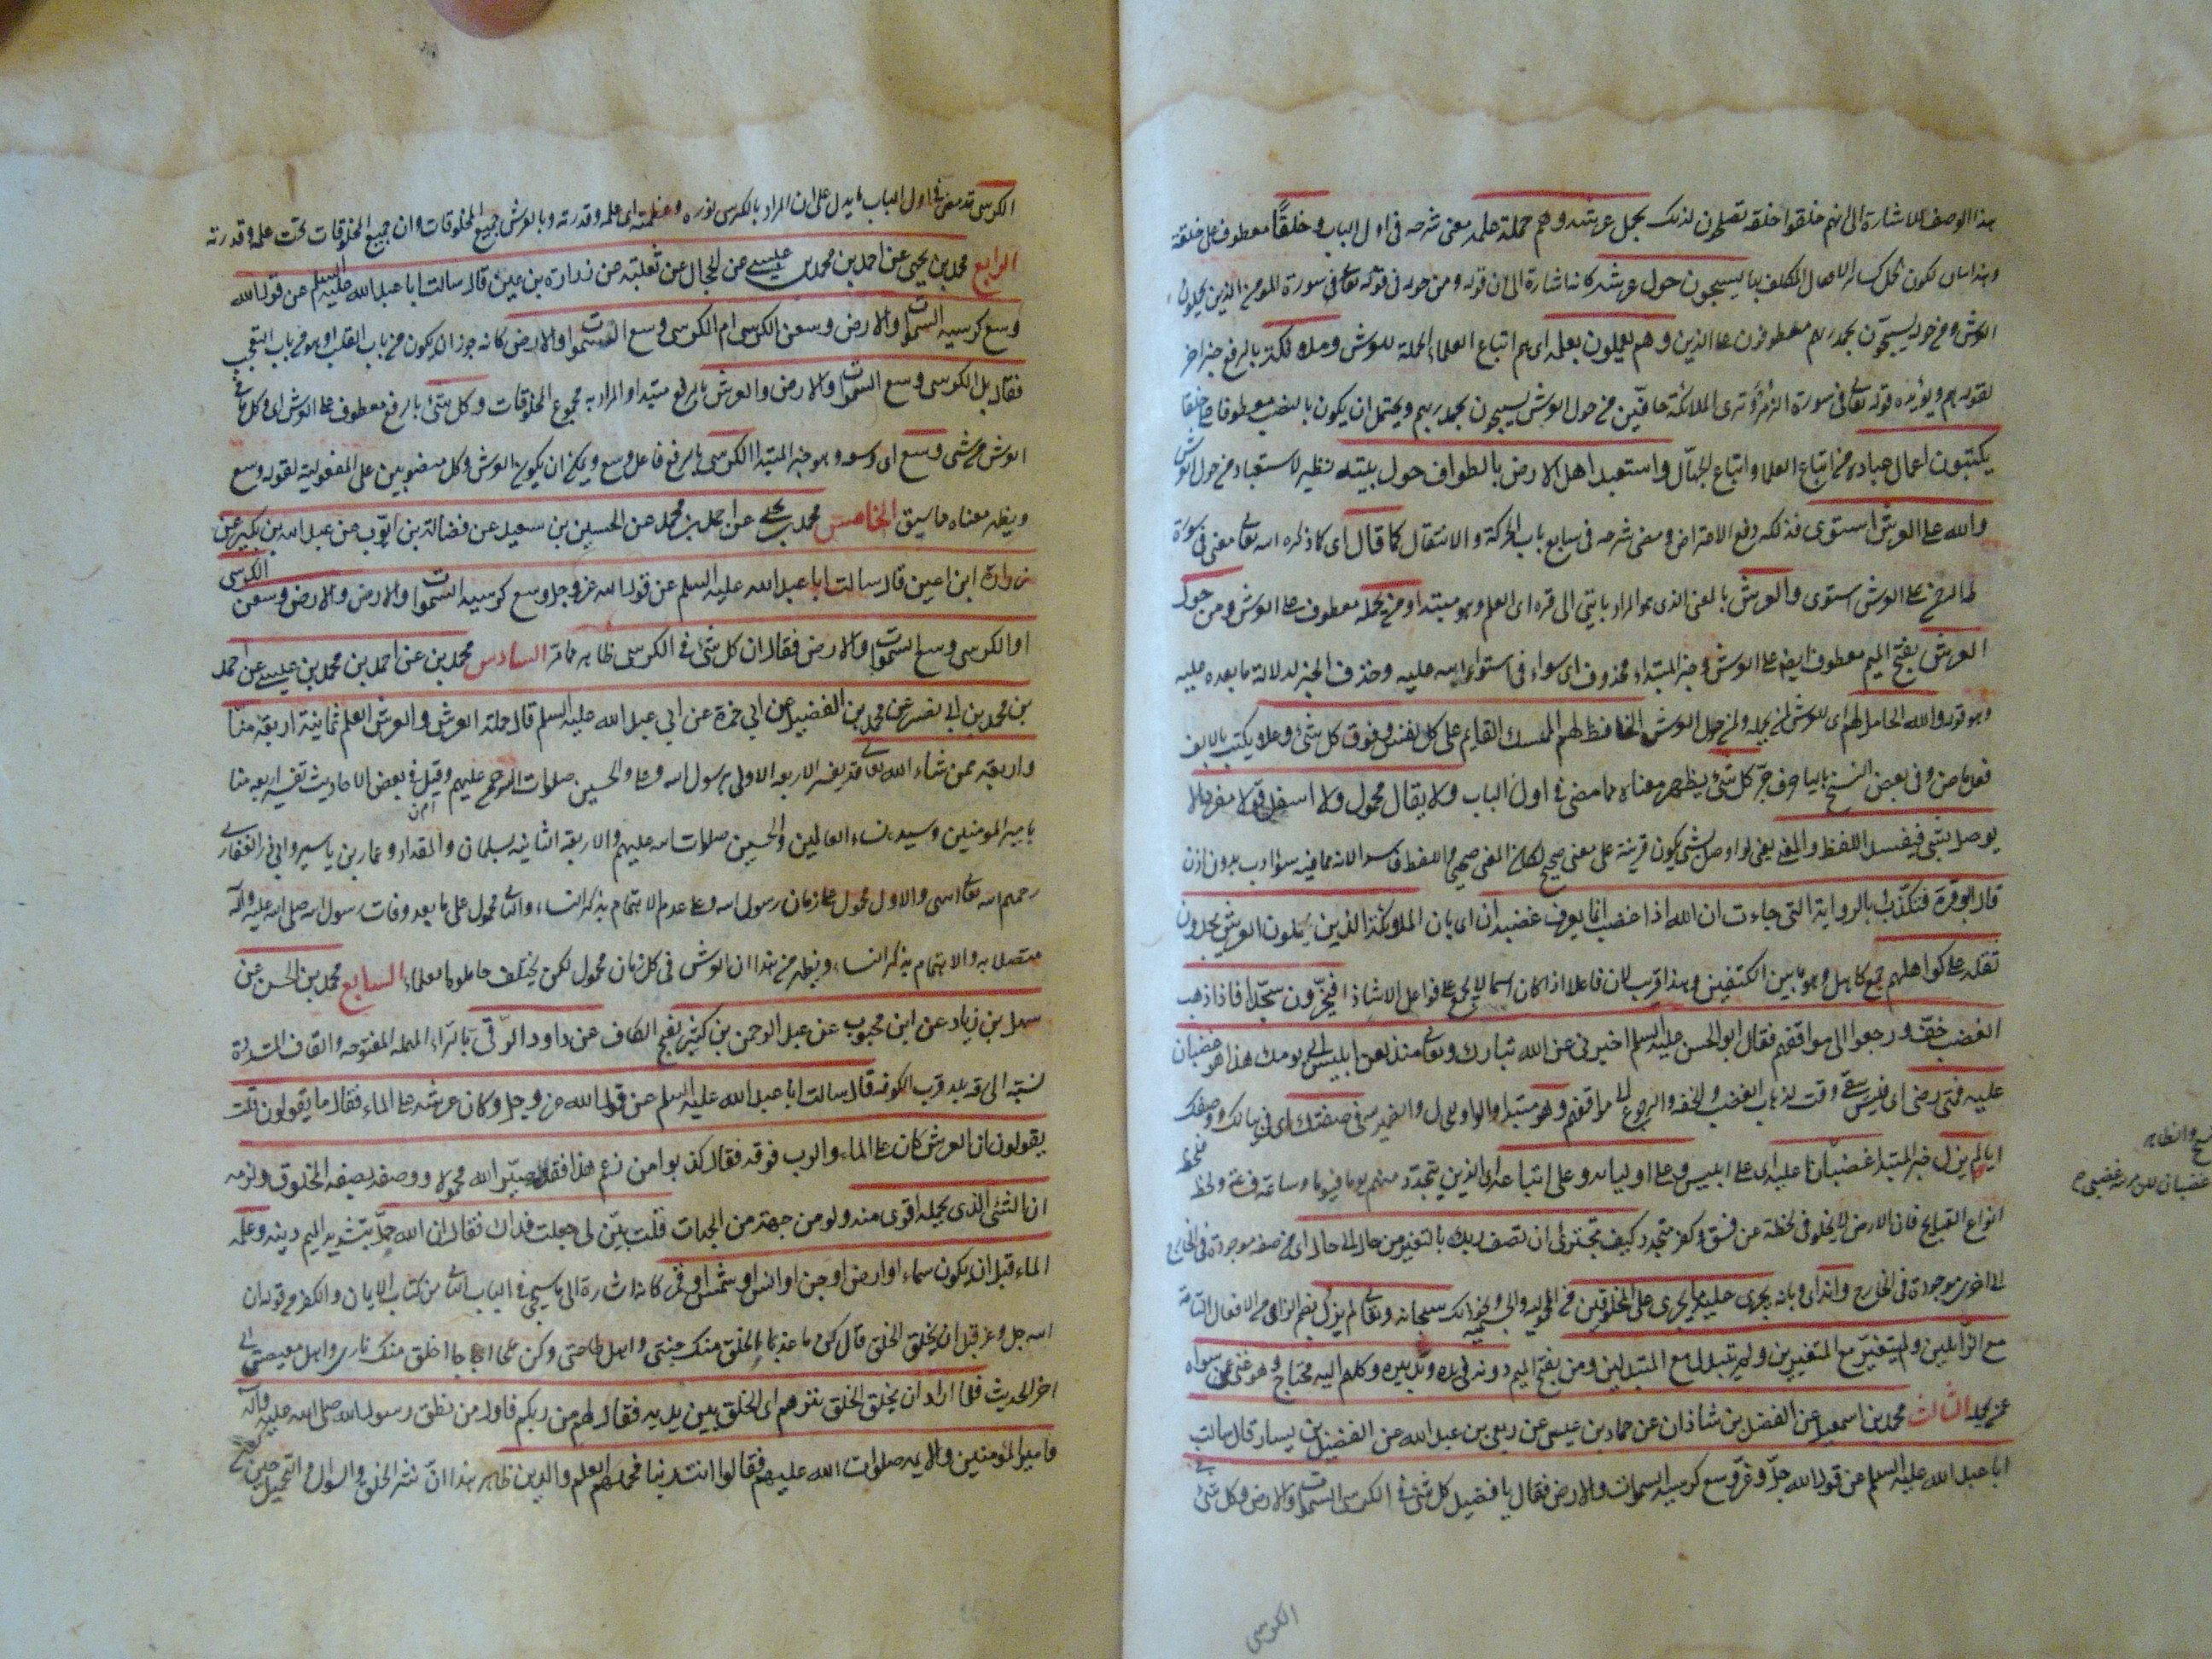 هذا الوصف للاشارة الى انهم خلقوا خلقة تصلحون لذلك بحمل عرشه وهم حملة علمه معنى شرحه فى اول الباب وخلقًا معطوف على خلقه
يكون كسائر الاعمال المكلف بها يسبحون حول عرشه كانه اشارة الى ان قوله ومن حوله فى قوله تعالى فى سورة المؤمن الذين يحملون
العرش ومن حوله يسبحون بحمد ربهم معطوفون على الذين وهم يعملون بعلمه اى هم اتباع العلماء الحملة للعرش وملائكة بالرفع خبر اخر
لقوله هم ويؤيده قوله تعالى فى سورة الزمر وترى الملائكة حافين من حول العرش يسبحون بحمد ربهم ويحتمل ان يكون بالنصب معطوفا على خلقا
يكتبون اعمال عباده من اتباع العلما واتباع الجهّال واستعبد اهل الارض بالطواف حول بيته نظير لاستعباد من حول العرش
والله على العرش استوى فذلكه دفع الاعتراض ومضى شرحه فى سابع باب الحركة والانتقال كما قال اى كما ذكره الله تعالى معنى فى سورة
طه الرحمن على العرش استوى والعرش بالمعنى الذى هو المراد بايتى الى قره اى العلم وهو مبتدا ومن يحمله معطوف على العرش ومن حول
العرش بفتح الميم معطوف ايضا على العرش وخبر المبتداء محذوف اى سواء فى استواء الله عليه وحذف الخبر لدلالة ما بعده عليه
وهو قوله والله الحامل لهم اى للعرش لمن يحمله ولمن حول العرش الحافظ لهم الممسك القايم على كل نفس وفوق كل شئ وعلا يكتب بالالف
فعل ماض وفى بعض النسخ بالياء حرف جرّ كل شئ يظهر معناه مما مضى فى اول الباب ولا يقال محمول ولا اسفل قولا مفردا لا
يوصل بشئ فيفسد اللفظ والمعنى يعنى لو اوصل بشئ يكون قرينة على معنى صحيح لكان المعنى صحيح واللفظ فاسدا لانه مما فيه سؤ ادب بدون اذن
قال ابو قرة فتكذّب بالرواية التى جاءت ان الله اذا غضب انما يعرف غضبه ان اى بان الملائكة الذين يحملون العرش يجدون
ثقله على كواهلهم جمع كاهل وهو ما بين الكتفين وهذا قريب لان فاعلا اذا كان اسما لا يجمع على فواعل الا شاذا فيخرّون سجّدا فاذا ذهب
الغضب خفّ ورجعوا الى مواقفهم فقال ابو الحسن عليه السلم اخبرنى عن الله تبارك وتعالى منذ لعن ابليس الى يومك هذا هو غضبان
عليه فمتى رضى اى فليس يبقى وقت لذهاب الغضب والخفه والرجوع الى مواقفهم وهو مبتدا والواو للحال والضمير لله فى صفتك اى فى بيانك ووصفك
اياه لم يزل خبر المبتدا غضبانا عليه اى على ابليس وعلى اوليائه وعلى اتباعه اى الذين يتجدد منهم يوما فيوما وساعة فساعة ولحظة فلحظة
انواع القبايح فان الارض لا يخلو فى لحظة عن فسق وكفر متجدد كيف تجترئ ان تصف ربك بالتغير من حال الى حال اى من صفة موجودة فى الخارج
الى اخرى موجودة فى الخارج وانه اى وبانه يجرى عليه ما يجرى على المخلوقين من المحمولية والجسمية ونحو ذلك سبحانه وتعالى لم يزل بضم الزاى من الافعال التامة
مع الزّايلين ولم يتغيّر مع المتغيرين ولم يتبدل مع المتبدلين ومن بفتح الميم دونه فى يده وتدبيره وكلهم اليه محتاج وهو غنى عمن سواه
الثالث محمد بن اسمعيل عن الفضل بن شاذان عن حماد بن عيسى عن ربعى بن عبد الله عن الفضيل بن يسار قال سالت
ابا عبد الله عليه السلم عن قول الله جلّ وعزّ وسع كرسيه السموات والارض فقال يا فضيل كل شئ فى الكرسى السموات والارض وكل شئ فى
الكرسى
الكرسى قد مضى فى اول الباب ما يدل على ان المراد بالكرسى نوره وعظمته اى علمه وقدرته وبالعرش جميع المخلوقات وان جميع المخلوقات تحت علمه وقدرته
الرابع محمد بن يحيى عن احمد بن محمد بن عيسى عن الحجال عن ثعلبة عن زرارة بن اعين قال سالت ابا عبد الله عليه السلم عن قول الله
وسع كرسيه السموات والارض وسعن الكرسى ام الكرسى وسع السموات والارض كانه جوز ان يكون من باب القلب او هو من باب التعجب
فقال بل الكرسى وسع السموات والارض والعرش بالرفع مبتدا والمراد به مجموع المخلوقات وكل شئ بالرفع معطوف على العرش اى وكل ما فى
العرش من شئ وسع اى وسعه وهو خبر المبتدا الكرسى بالرفع فاعل وسع ويمكن ان يكون العرش وكل منصوبين على المفعولية لقوله وسع
ويظهر معناه ما سبق الخامس محمد بن يحيى عن احمد بن محمد عن الحسين بن سعيد عن فضالة بن ايّوب عن عبد الله بن بكير عن
زرارة ابن اعين قال سالت ابا عبد الله عليه السلم عن قول الله عز وجل وسع كرسيه السموات والارض والارض وسعن الكرسى
او الكرسى وسع السموات والارض فقال ان كل شئ فى الكرسى ظاهر مما مر السادس محمد بن عن احمد بن محمد بن عيسى عن احمد
بن محمد بن ابى نصر عن محمد بن الفضيل عن ابى حمزة عن ابى عبد الله عليه السلم قال حملة العرش والعرش العلم ثمانية اربعة منا
واربعة ممن شاء الله تعالى قد يفسر الاربعه الاولى برسول الله وعلى والحسين صلوات الله عليهم وقيل فى بعض الاحاديث تفسير اربعه منا
بامير المومنين وسيدة نساء العالمين والحسين صلوات الله عليهم والاربعة الثانية بسلمان والمقداد وعمار بن ياسر وابى ذر الغفارى
رحمهم الله تعالى انتهى والاول محمول على زمان رسول الله وعلى عدم الاهتمام بذكر النساء والثانى محمول على ما بعد وفات رسول الله صلى الله عليه وآله
متصلا به والاهتمام بذكر النساء ويظهر من هذا ان العرش فى كل زمان محمول لكن يختلف حاملوه السابع محمد بن الحسن عن
سهل بن زياد عن ابن محبوب عن عبد الرحمن بن كثير بفتح الكاف عن داود الرّقى بالرّاء المهمله المفتوحه والقاف المشددة
نسبة الى رقه بلد قرب الكوفه قال سالت ابا عبد الله عليه السلم عن قول الله عز وجل وكان عرشه على الماء فقال ما يقولون قلت
يقولون ان العرش كان على الماء والرب فوقه فقال كذبوا من زعم هذا فقد صيّر الله محمولا ووصفه بصفة المخلوق ولزمه
ان الشئ الذى يحمله اقوى منه ولو من جهة من الجهات قلت بيّن لى جعلت فداك فقال ان الله حمّل بتشديد الميم دينه وعلمه
الماء قبل ان يكون سماء او ارض او جن او انس او شمس او قمر كانه اشارة الى ما سيجئ فى الباب الثانى من كتاب الايمان والكفر من قوله ان
الله جل وعز قبل ان يخلق الخلق قال كن ماء عذبا اخلق منك جنتى واهل طاعتى وكن ملحا اجاجا اخلق منك نارى واهل معصيتى الى
اخر الحديث فلما اراد ان يخلق الخلق نثرهم اى الخلق بين يديه فقال لهم من ربكم فاول من نطق رسول الله صلى الله عليه وآله
وامير المؤمنين والائمه صلوات الله عليهم فقالوا انت ربنا فحملهم العلم والدين ظاهر هذا انّ نثر الخلق والسؤال والتحميل